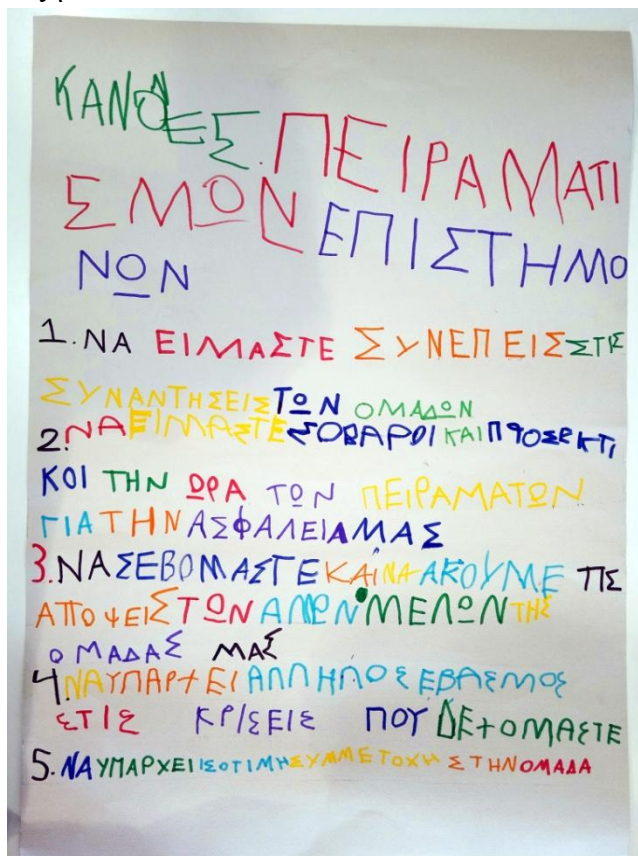 ΚΑΝΟΝΕΣ ΠΕΙΡΑΜΑΤΙ
ΣΜΩΝ ΕΠΙΣΤΗΜΟ
ΝΩΝ
1. ΝΑ ΕΙΜΑΣΤΕ ΣΥΝΕΠΕΙΣ ΣΤΙΣ
ΣΥΝΑΝΤΗΣΕΙΣ ΤΩΝ ΟΜΑΔΩΝ
2. ΝΑ ΕΙΜΑΣΤΕ ΣΟΒΑΡΟΙ ΚΑΙ ΠΡΟΣΕΚΤΙ
ΚΟΙ ΤΗΝ ΩΡΑ ΤΩΝ ΠΕΙΡΑΜΑΤΩΝ
ΓΙΑ ΤΗΝ ΑΣΦΑΛΕΙΑ ΜΑΣ
3. ΝΑ ΣΕΒΟΜΑΣΤΕ ΚΑΙ ΝΑ ΑΚΟΥΜΕ ΤΙΣ
ΑΠΟΨΕΙΣ ΤΩΝ ΜΕΛΩΝ ΤΗΣ
ΟΜΑΔΑΣ ΜΑΣ
4. ΝΑ ΥΠΑΡΧΕΙ ΑΛΛΗΛΟΣΕΒΑΣΜΟΣ
ΣΤΙΣ ΚΡΙΣΕΙΣ ΠΟΥ ΔΕΧΟΜΑΣΤΕ
5. ΝΑ ΥΠΑΡΧΕΙ ΙΣΟΤΙΜΗ ΣΥΜΜΕΤΟΧΗ ΣΤΗΝ ΟΜΑΔΑ